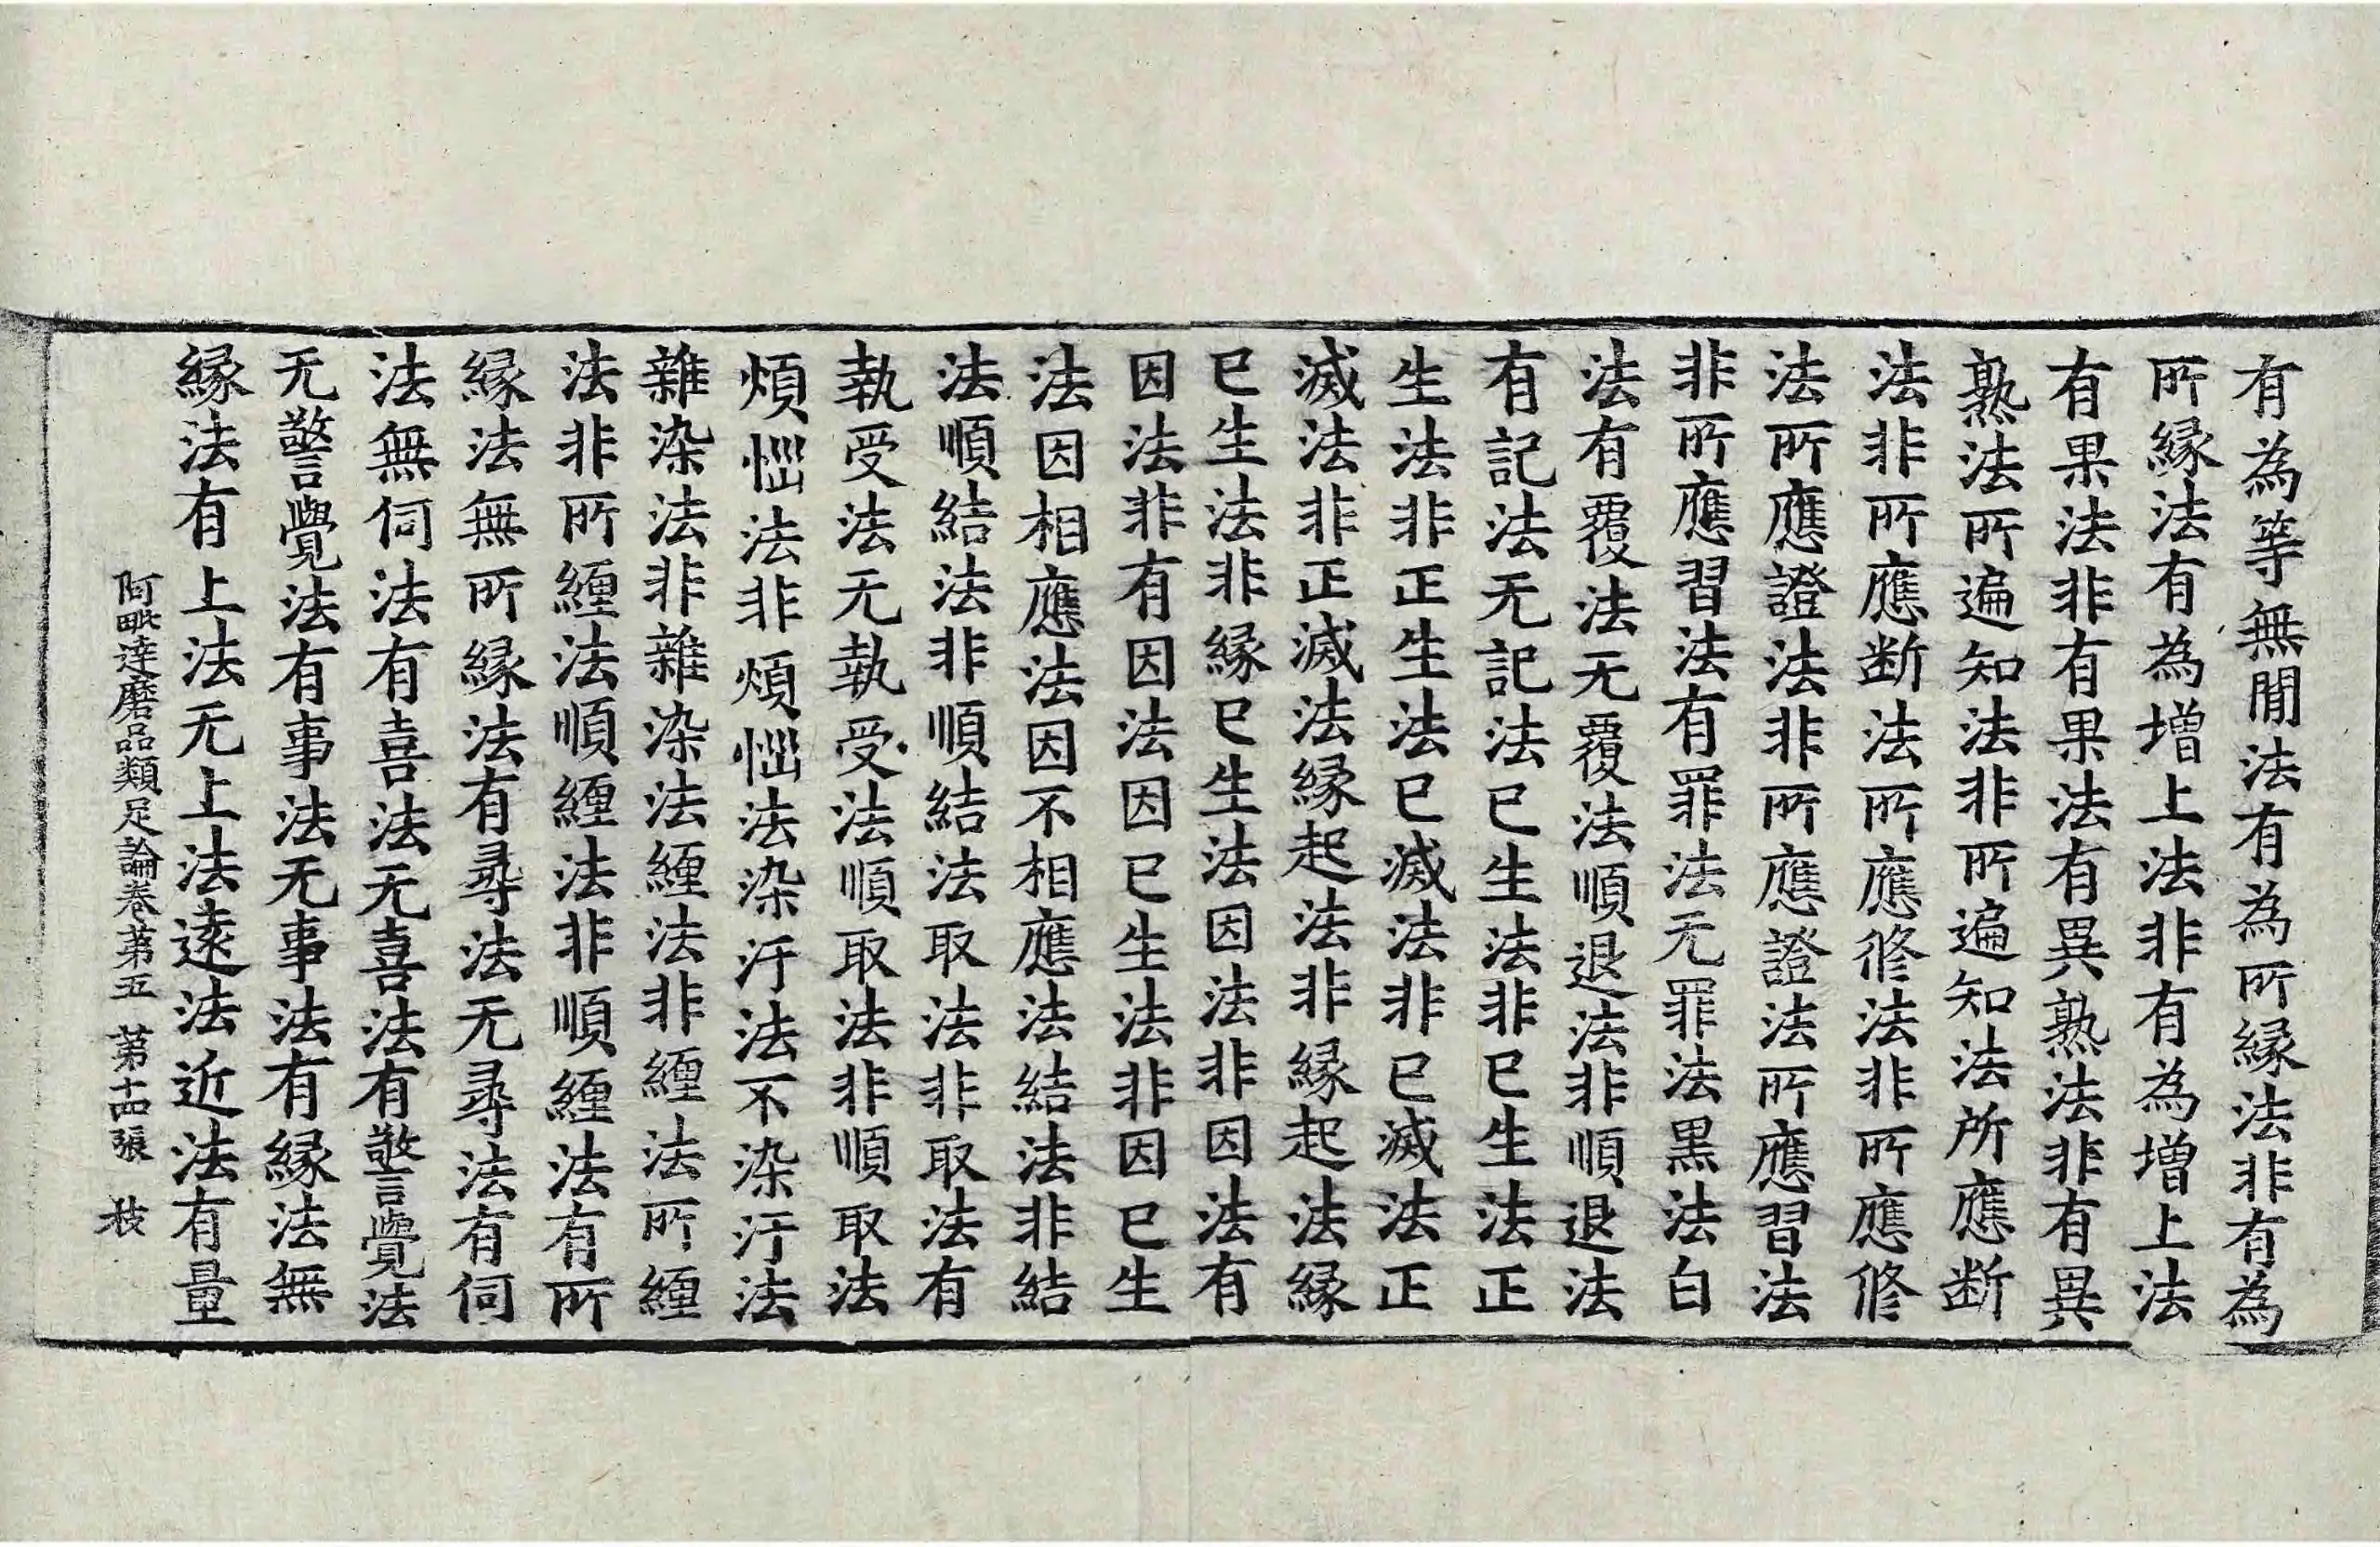 有為等無間法有為所緣法非有為
所緣法有為增上法非有為增上法
有果法非有果法有異熟法非有異
熟法所遍知法非所遍知法所應断
法非所應断法所應修法非所應修
法所應證法非所應證法所應習法
非所應習法有罪法无罪法黒法白
法有覆法无覆法順退法非順退法
有記法无記法已生法非已生法正
生法非正生法已滅法非已滅法正
滅法非正滅法緣起法非緣起法緣
已生法非緣已生法因法非因法有
因法非有因法因已生法非因已生
法因相應法因不相應法結法非結
法順結法非順結法取法非取法有
執受法无執受法順取法非順取法
煩惱法非煩惱法染汙法不染汙法
雜染法非雜染法纏法非纏法所纏
法非所纏法順纏法非順纏法有所
緣法無所緣法有尋法无尋法有伺
法無伺法有喜法无喜法有警覺法
无警覺法有事法无事法有緣法無
緣法有上法无上法遠法近法有量
阿毗達磨品類足論卷第五 第十四張 枝